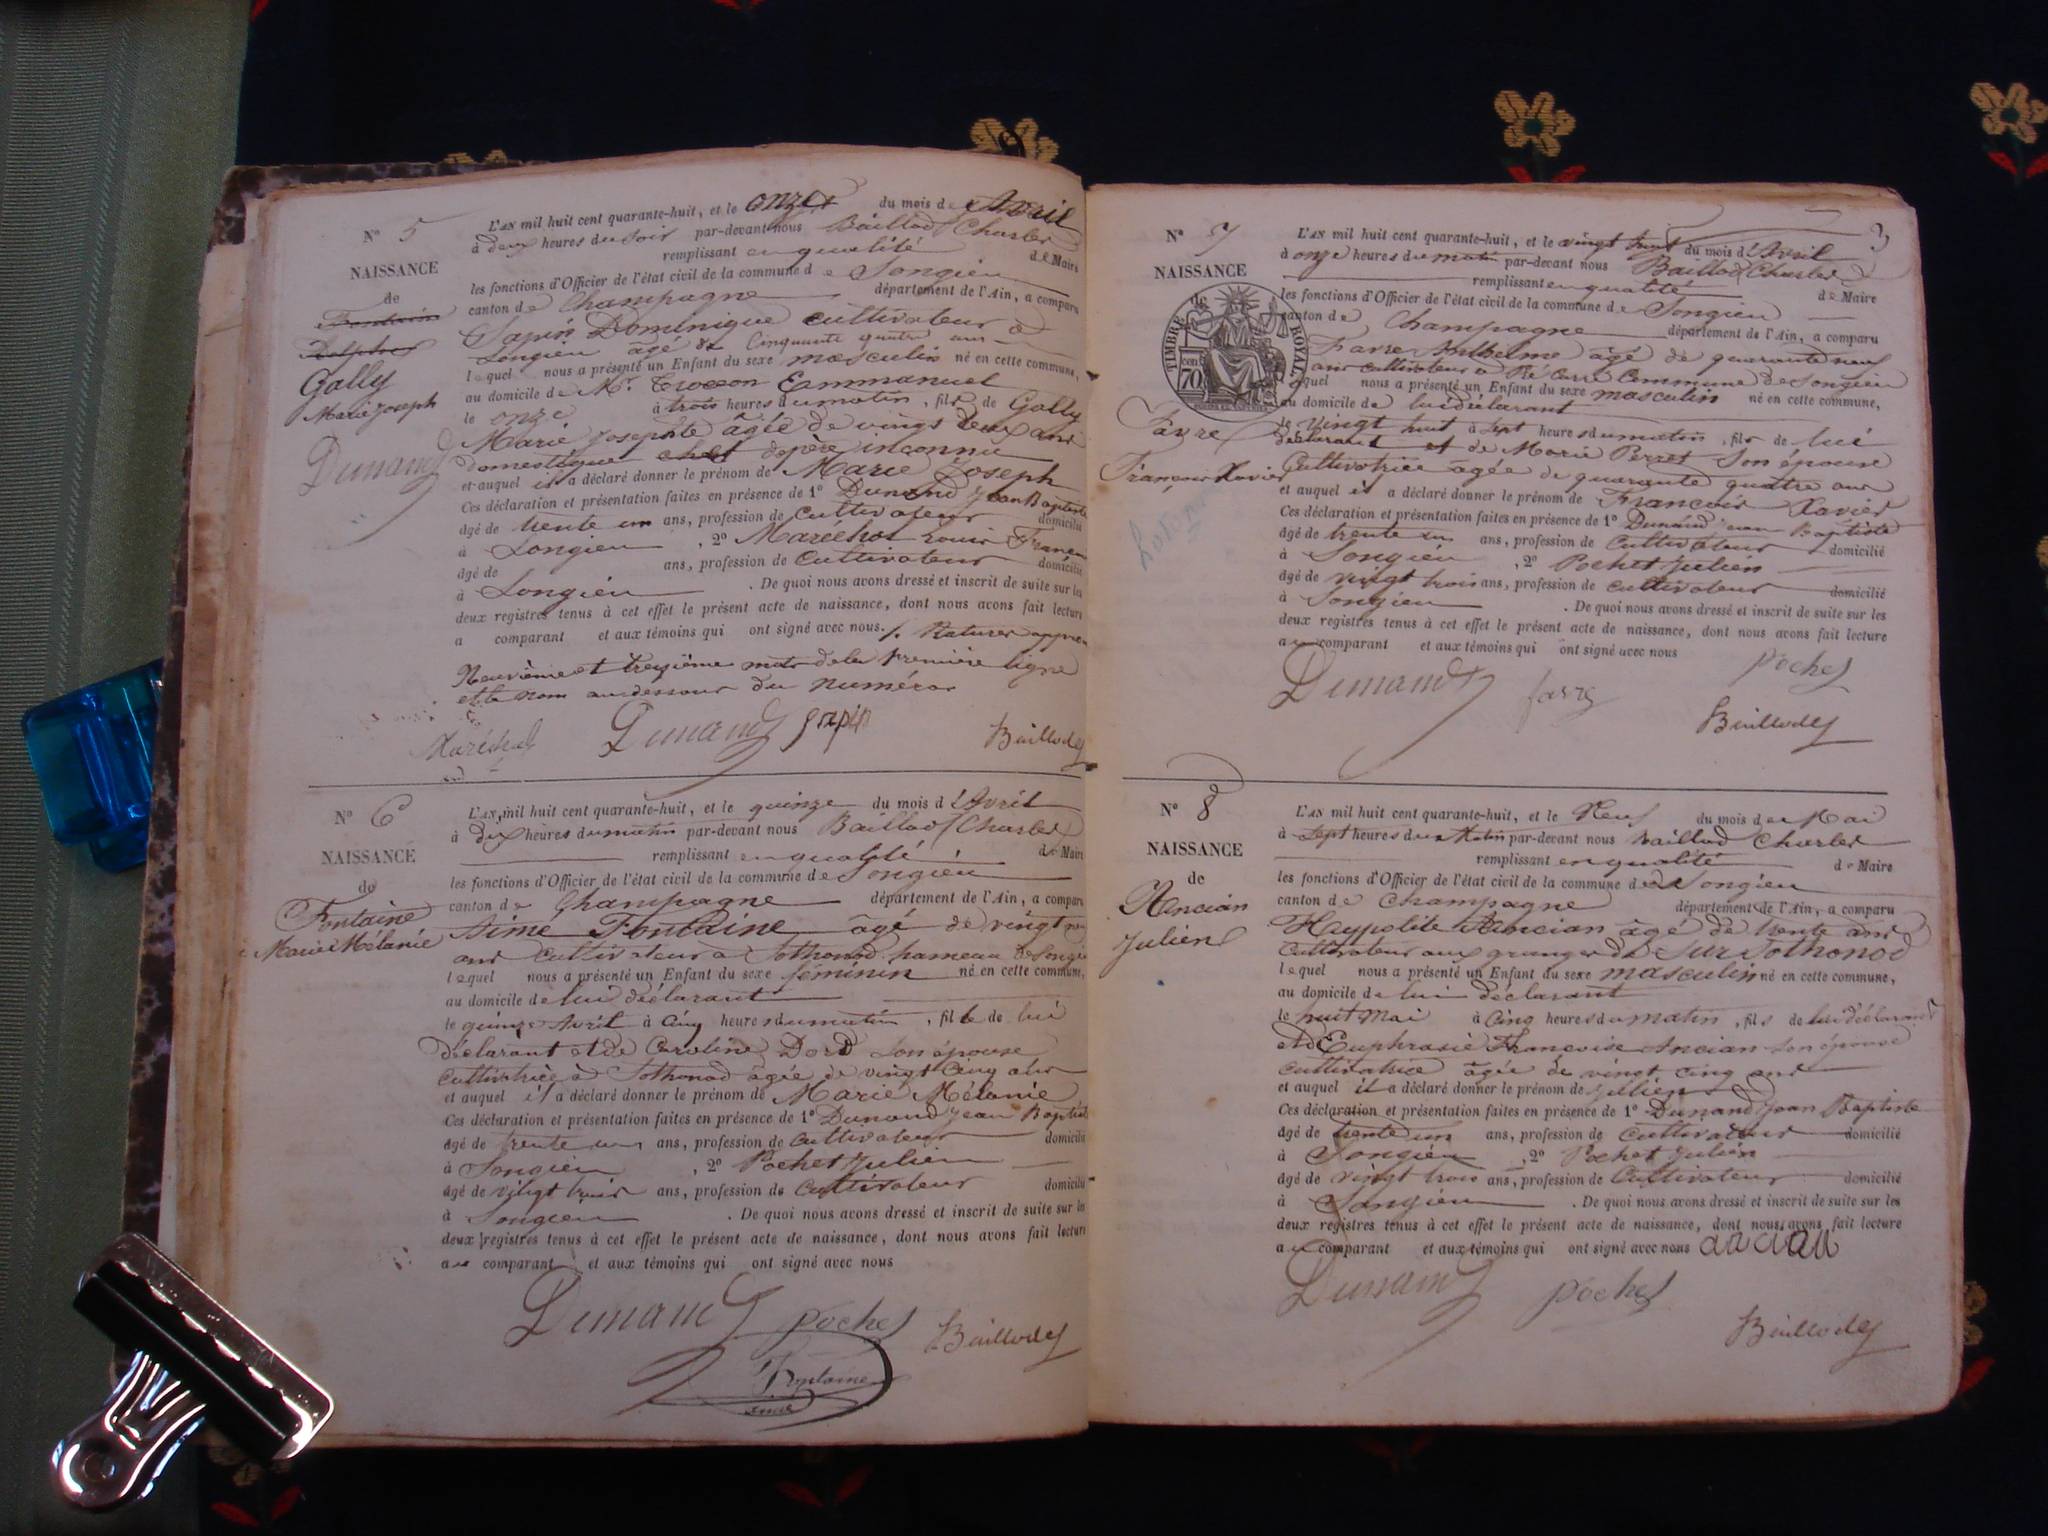 N° 5
NAISSANCE
de
Gally
Marie Joseph
Dunand
L'AN mil huit cent quarante-huit, et le onze du mois d'Avril
à deux heures du soir par-devant nous Baillod Charles
remplissant en qualité de Maire
les fonctions d'Officier de l'état civil de la commune de Songieu
canton de Champagne département de l'Ain, a comparu
Sapin Dominique cultivateur à
Songieu âgé de Cinquante quatre ans
lequel nous a présenté un Enfant du sexe masculin né en cette commune,
au domicile de Mr. Emmanuel
le onze à trois heures du matin, fils de Gally
Marie Josephte âgée de vingt deux ans
domestique et de père inconnu
et auquel il a déclaré donner le prénom de Marie Joseph
Ces déclaration et présentation faites en présence de 1° Dunand Jean Baptiste
âgé de trente un ans, profession de Cultivateur domicilié
à Songieu , 2° Maréchal Louis
âgé de ans, profession de Cultivateur domicilié
à Songieu . De quoi nous avons dressé et inscrit de suite sur les
deux registres tenus à cet effet le présent acte de naissance, dont nous avons fait lecture
a comparant et aux témoins qui ont signé avec nous.
Neuvième et treizième mots de la première ligne
et le nom au dessous du numéro
Maréchal Dunand Sapin Baillod
N° 6
NAISSANCE
de
Fontaine
Marie Mélanie
L'AN mil huit cent quarante-huit, et le quinze du mois d'Avril
à dix heures du matin par-devant nous Baillod Charles
remplissant en qualité de Maire
les fonctions d'Officier de l'état civil de la commune de Songieu
canton de Champagne département de l'Ain, a comparu
Aimé Fontaine âgé de vingt
ans Cultivateur à Sothonod hameau de Songieu
lequel nous a présenté un Enfant du sexe féminin né en cette commune,
au domicile de lui déclarant
le quinze Avril à Cinq heures du matin, fille de lui
déclarant et de Caroline Dord Son épouse
Cultivatrice à Sothonod âgée de vingt Cinq ans
et auquel il a déclaré donner le prénom de Marie Mélanie
Ces déclaration et présentation faites en présence de 1° Dunand Jean Baptiste
âgé de trente un ans, profession de Cultivateur domicilié
à Songieu , 2° Pochet Julien
âgé de vingt trois ans, profession de Cultivateur domicilié
à Songieu . De quoi nous avons dressé et inscrit de suite sur les
deux registres tenus à cet effet le présent acte de naissance, dont nous avons fait lecture
au comparant et aux témoins qui ont signé avec nous
Dunand Pochet Baillod
Fontaine
aimé
3
N° 7
NAISSANCE
de
TIMBRE ROYAL
70
Favre
François Xavier
L'AN mil huit cent quarante-huit, et le vingt huit du mois d'Avril
à onze heures du matin par-devant nous Baillod Charles
remplissant en qualité de Maire
les fonctions d'Officier de l'état civil de la commune de Songieu
canton de Champagne département de l'Ain, a comparu
Favre Anthelme âgé de quarante neuf
ans cultivateur à Commune de Songieu
lequel nous a présenté un Enfant du sexe masculin né en cette commune,
au domicile de lui déclarant
le vingt huit à Sept heures du matin, fils de lui
déclarant et de Marie Perret Son épouse
Cultivatrice âgée de quarante quatre ans
et auquel il a déclaré donner le prénom de François Xavier
Ces déclaration et présentation faites en présence de 1° Dunand Jean Baptiste
âgé de trente un ans, profession de Cultivateur domicilié
à Songieu , 2° Pochet Julien
âgé de vingt trois ans, profession de cultivateur domicilié
à Songieu . De quoi nous avons dressé et inscrit de suite sur les
deux registres tenus à cet effet le présent acte de naissance, dont nous avons fait lecture
au comparant et aux témoins qui ont signé avec nous
Dunand favre Pochet
Baillod
N° 8
NAISSANCE
de
Ancian
Julien
L'AN mil huit cent quarante-huit, et le Neuf du mois de Mai
à Sept heures du Matin par-devant nous Baillod Charles
remplissant en qualité de Maire
les fonctions d'Officier de l'état civil de la commune de Songieu
canton de Champagne département de l'Ain, a comparu
Hyppolite Ancian âgé de trente ans
Cultivateur aux granges de Sur Sothonod
lequel nous a présenté un Enfant du sexe masculin né en cette commune,
au domicile de lui déclarant
le huit Mai à Cinq heures du matin, fils de lui déclarant
et d'Euphrasie Françoise Ancian son épouse
Cultivatrice âgée de vingt cinq ans
et auquel il a déclaré donner le prénom de Julien
Ces déclaration et présentation faites en présence de 1° Dunand Jean Baptiste
âgé de trente un ans, profession de Cultivateur domicilié
à Songieu , 2° Pochet Julien
âgé de vingt trois ans, profession de Cultivateur domicilié
à Songieu . De quoi nous avons dressé et inscrit de suite sur les
deux registres tenus à cet effet le présent acte de naissance, dont nous avons fait lecture
au comparant et aux témoins qui ont signé avec nous ancian
Dunand Pochet
Baillod